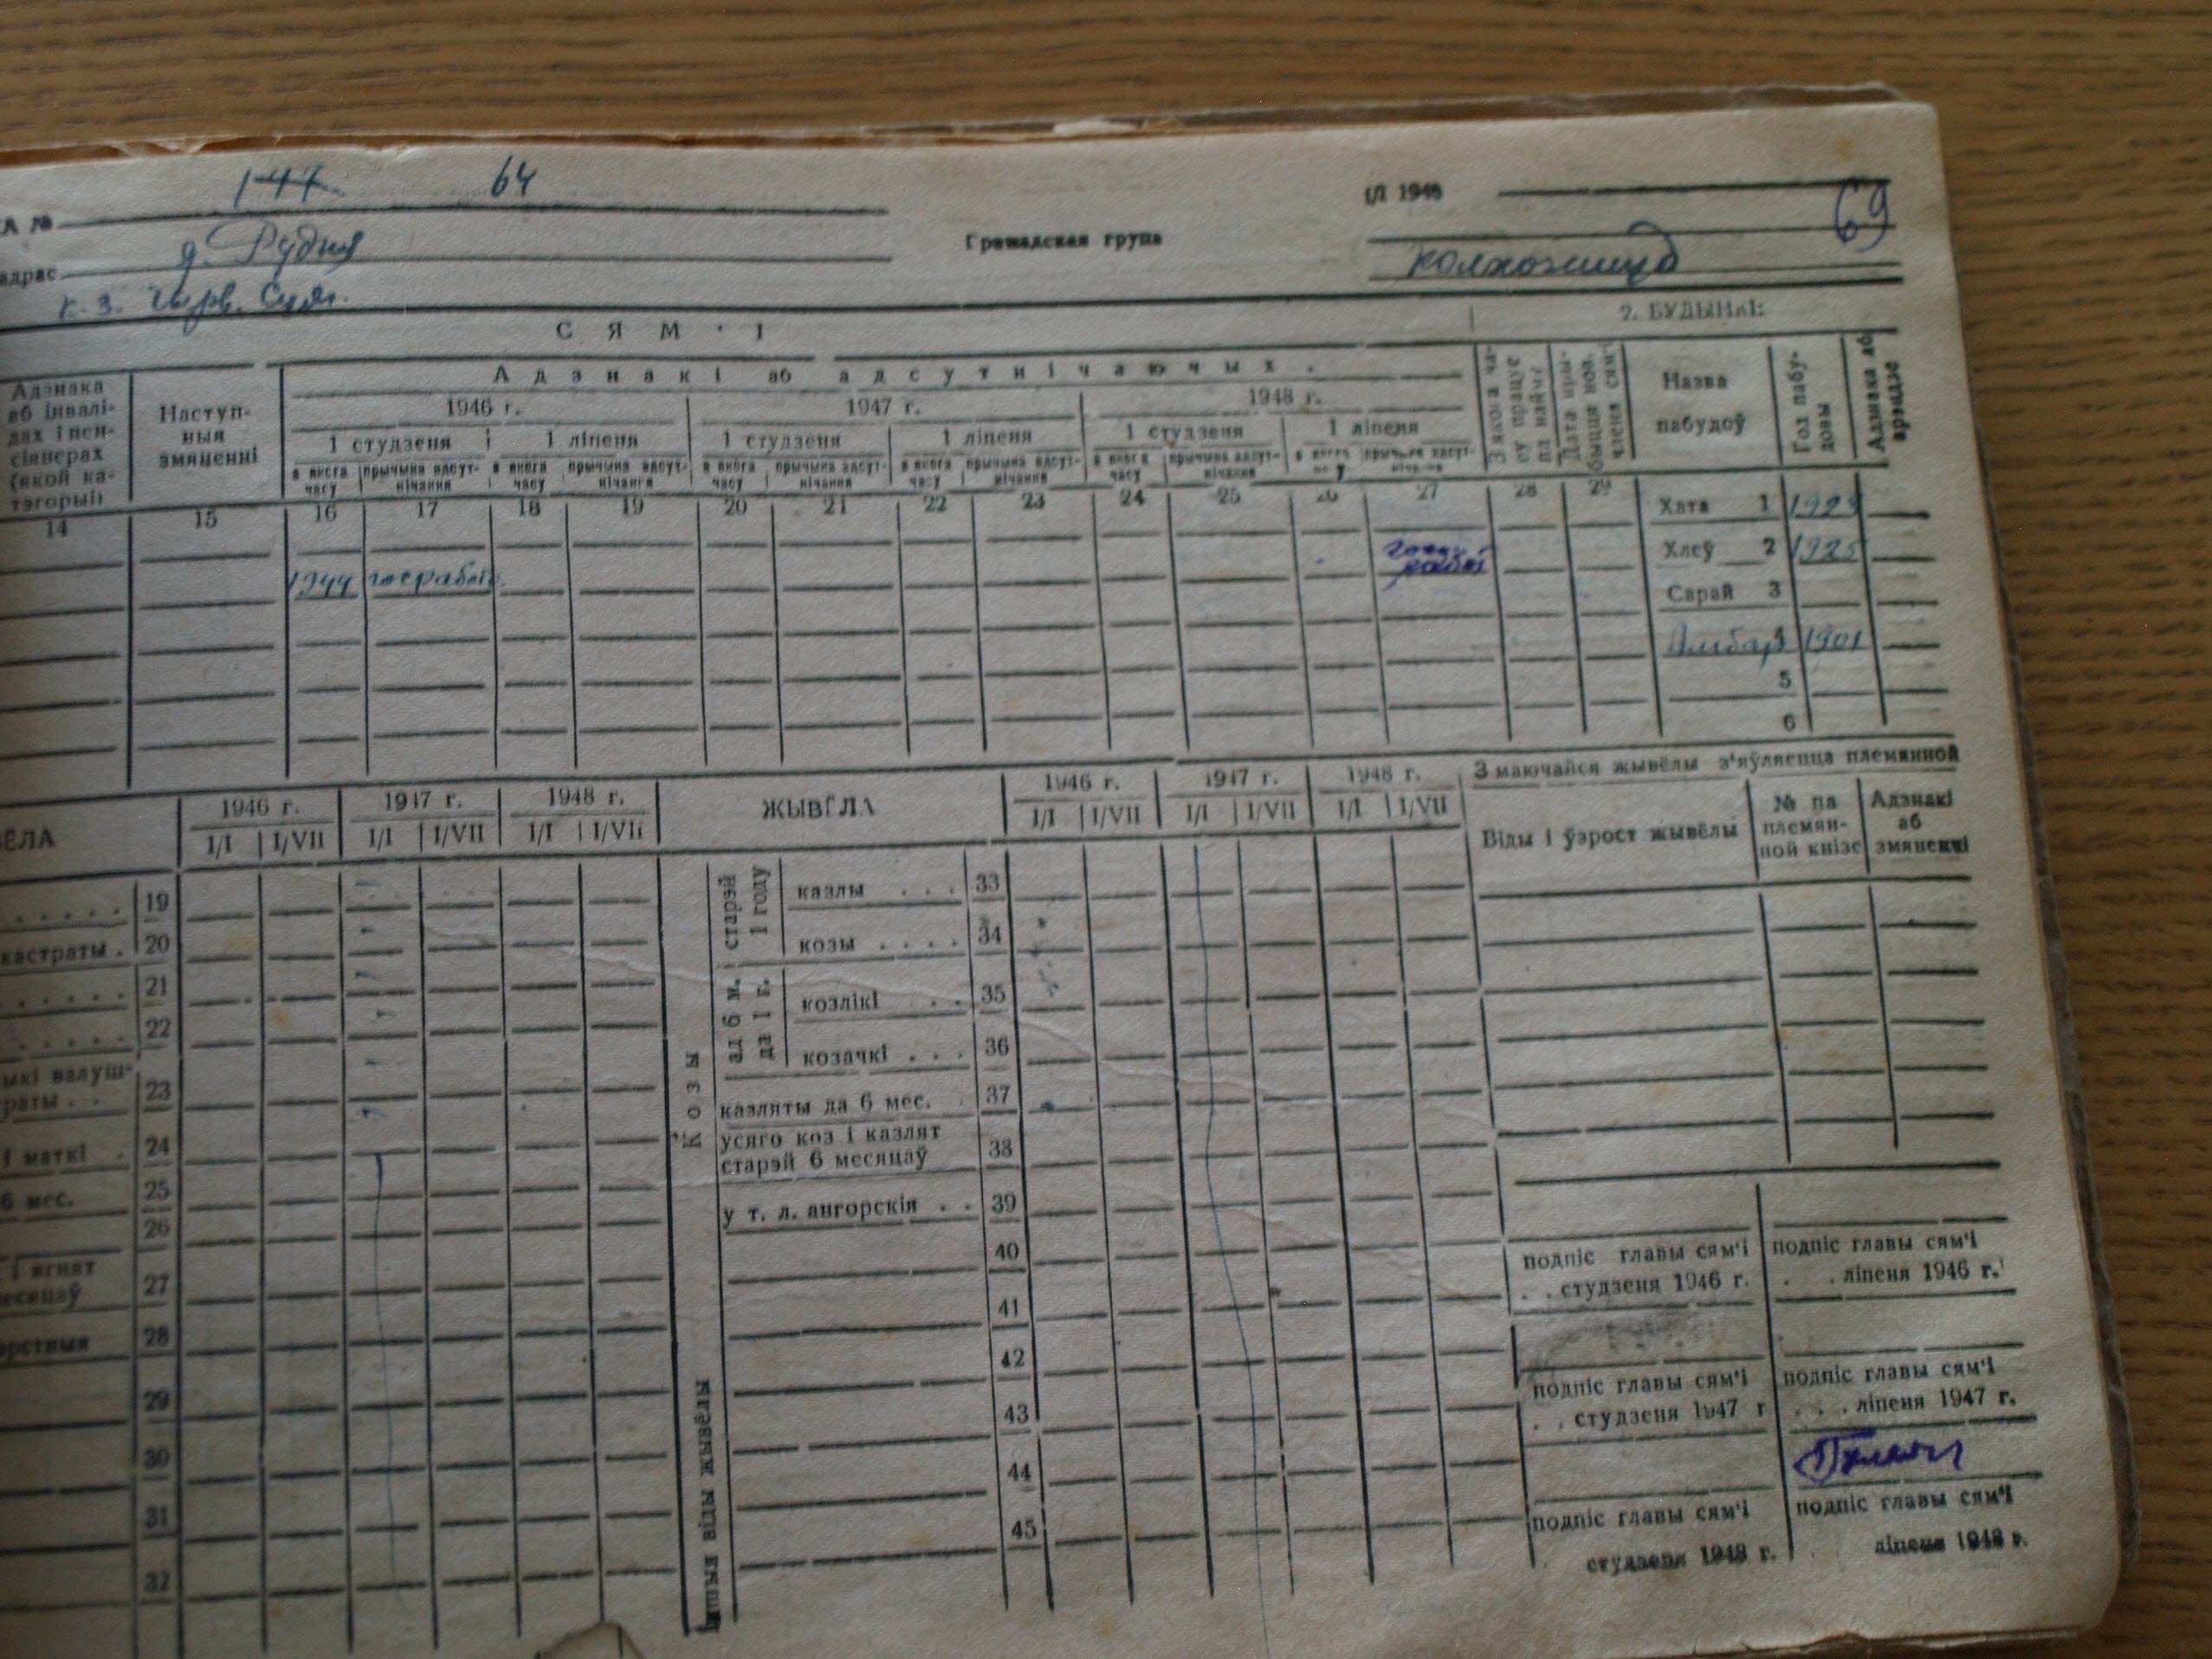 А № 147 64
1/I 1948
69
адрас д. Рудня
Грамадская група
колхозница
к. з. Чырв. Сцяг.
СЯМ'І
2. БУДЫНКІ:
Адзнака аб інвалідах і пенсіянерах (якой катэгорыі)
Наступныя змяненні
Адзнакі аб адсутнічаючых.
1946 г.
1947 г.
1948 г.
1 студзеня
1 ліпеня
1 студзеня
1 ліпеня
1 студзеня
1 ліпеня
з якога часу
прычына адсутнічання
з якога часу
прычына адсутнічання
з якога часу
прычына адсутнічання
з якога часу
прычына адсутнічання
з якога часу
прычына адсутнічання
Назва пабудоў
Год пабудовы
Адзнака аб арэндзе
14 15 16 17 18 19 20 21 22 23 24 25 26 27 28 29
Хата 1 1923
Хлеў 2 1925
1944 госработ.
Сарай 3
Амбар 4 1901
5
6
ЁЛА
1946 г.
1947 г.
1948 г.
I/I I/VII I/I I/VII I/I I/VII
ЖЫВЁЛА
1946 г.
1947 г.
1948 г.
I/I I/VII I/I I/VII I/I I/VII
З маючайся жывёлы з'яўляецца племянной
Віды і ўзрост жывёлы
№ па племянной кнізе
Адзнакі аб змяненні
19
кастраты . 20
21
22
23
і маткі . 24
6 мес. 25
26
і ягнят
27
28
29
30
31
32
Козы
старэй 1 году
казлы . . . 33
козы . . . . 34
ад 6 м. да 1 г.
козлікі . . 35
козачкі . . . 36
казляты да 6 мес. 37
усяго коз і казлят
старэй 6 месяцаў 38
у т. л. ангорскія . . 39
Іншыя віды жывёлы
40
41
42
43
44
45
подпіс главы сям'і
. . студзеня 1946 г.
подпіс главы сям'і
. . ліпеня 1946 г.
подпіс главы сям'і
. . студзеня 1947 г
подпіс главы сям'і
. . . ліпеня 1947 г.
подпіс главы сям'і
студзеня 1948 г.
подпіс главы сям'і
ліпеня 1948 г.